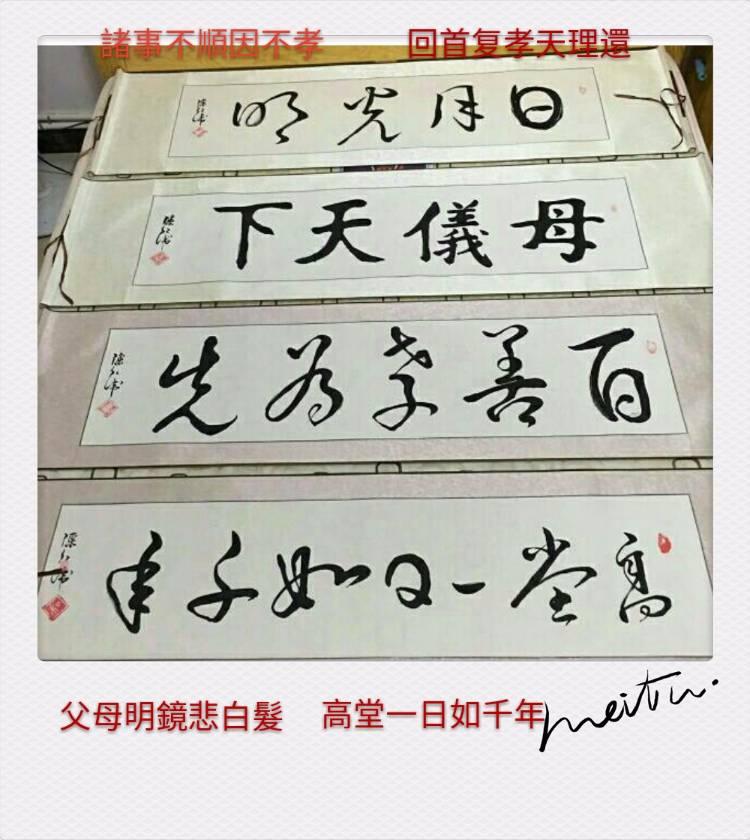 諸事不順因不孝 回首复孝天理還
日月光明
母儀天下
百善孝為先
高堂一日如千年
父母明鏡悲白髮 高堂一日如千年
meitu.